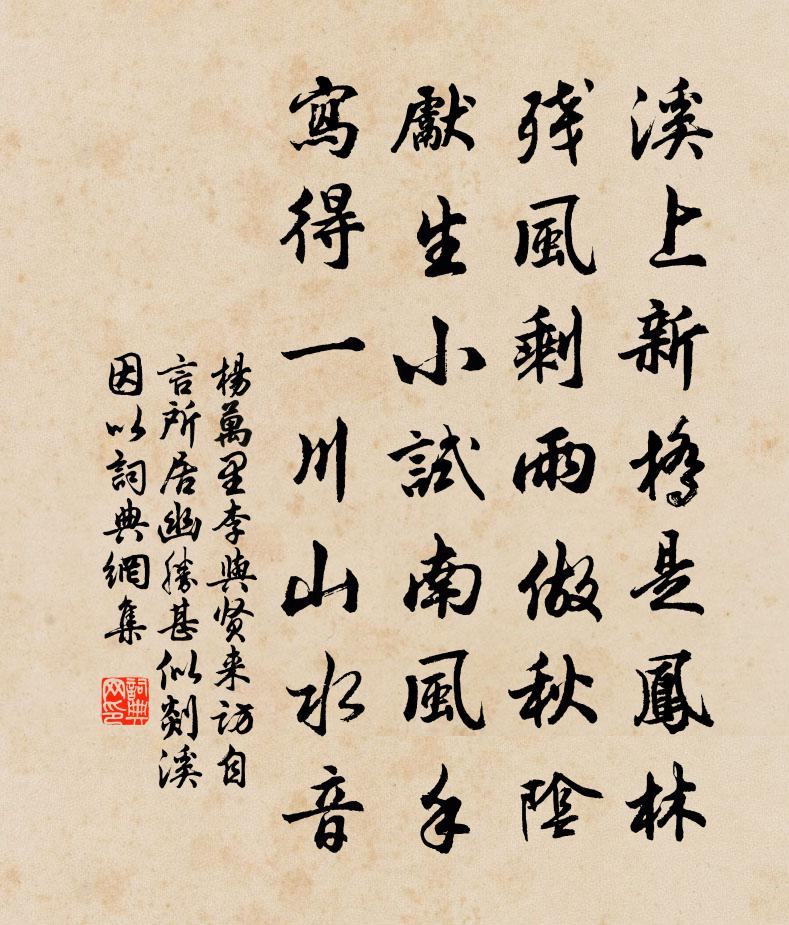 溪上新橋是鳳林
残風剩雨做秋陰
獻生小試南風手
寫得一川山水音
楊萬里李與贤来访自
言所居幽勝甚似剡溪
因以詞典網集
詞典
网印